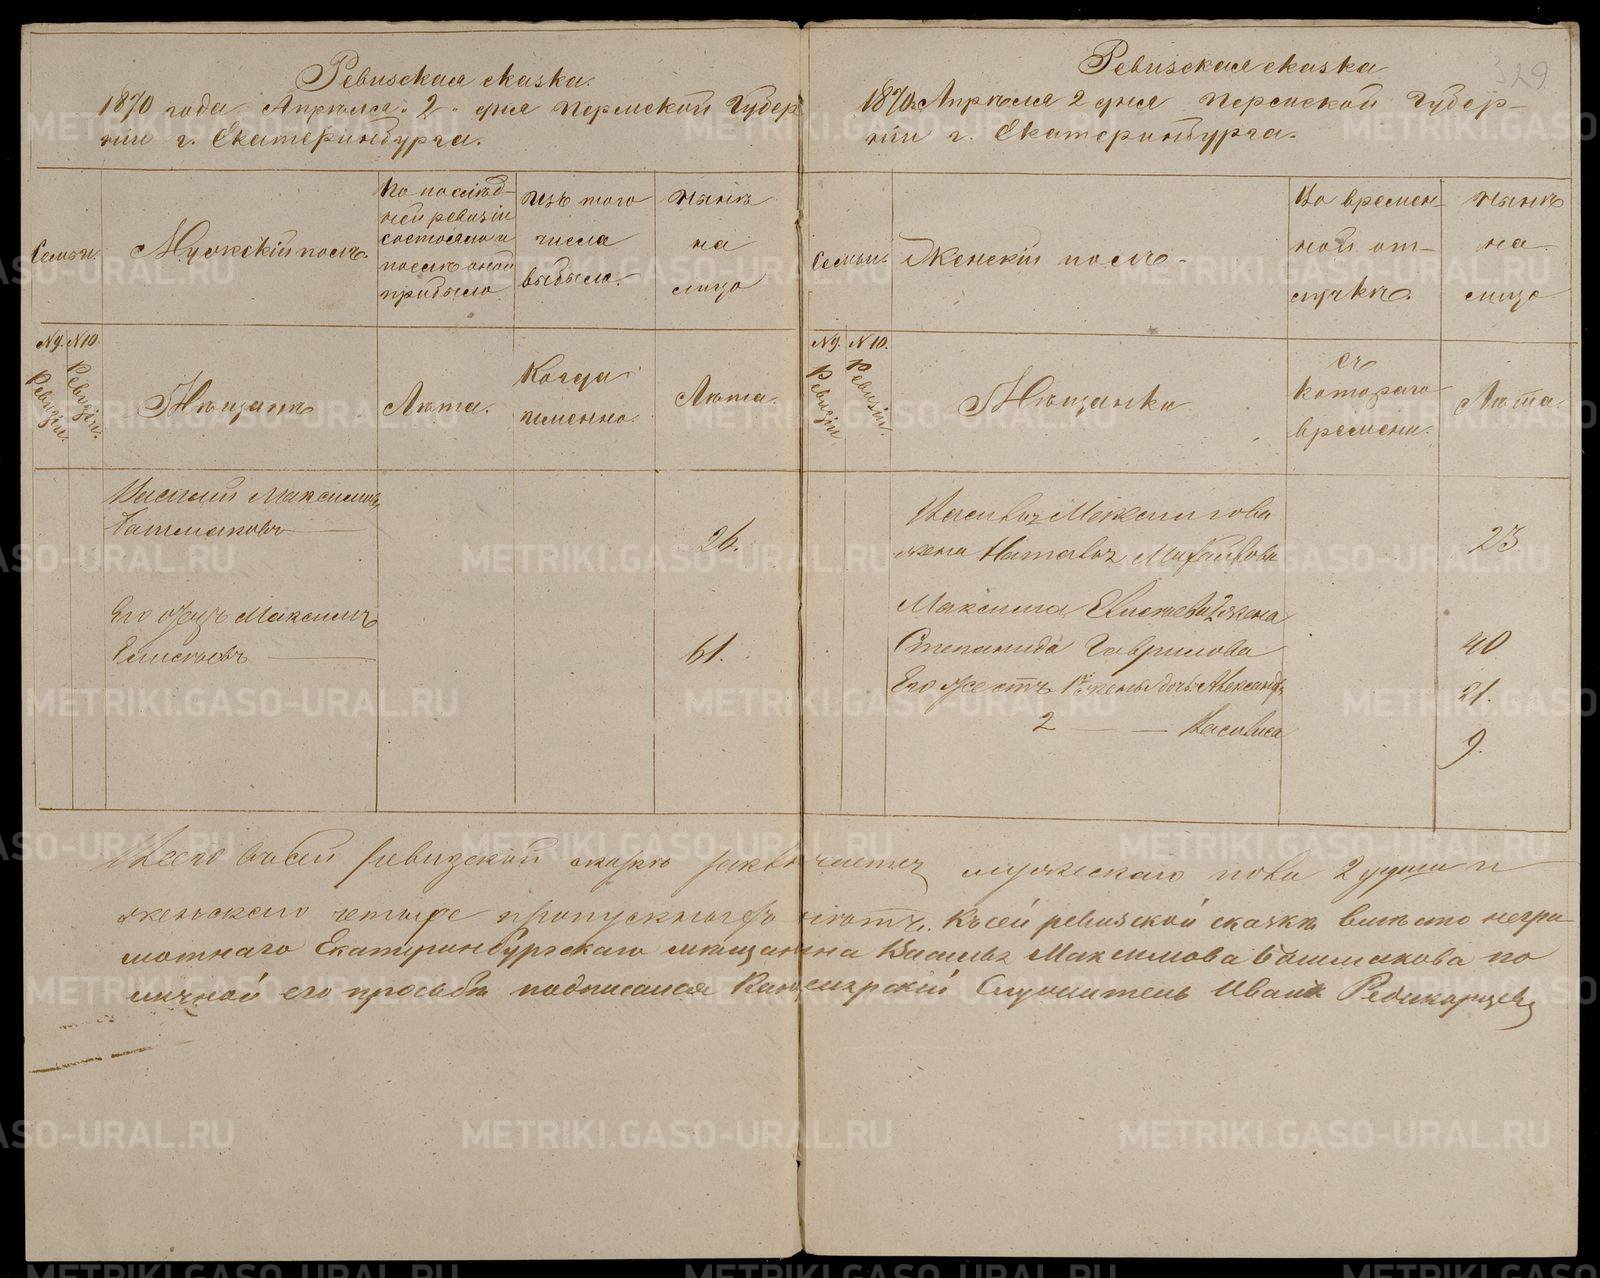 Ревизская сказка.
1870 года Апрѣля 2 дня Пермской Губер
ніи г. Екатеринбурга.
Семьи.
Мужскій полъ.
По послѣд-
ней ревизіи
состояло и
послѣ оной
прибыло
Изъ того
числа
выбыло.
Нынѣ
на
лицо
№ 9. Ревизіи.
№ 10. Ревизіи.
Мѣщанъ
Лѣта.
Когда
именно.
Лѣта.
Василий Максимовъ
Башмаковъ
26.
Его отецъ Максимъ
Елисѣевъ
61.
Ревизская сказка
329
1870 Апрѣля 2 дня Пермской Губер-
ніи г. Екатеринбурга.
Семьи.
Женскій полъ.
Во времен-
ной от-
лучкѣ.
Нынѣ
на
лицо
№ 9. Ревизіи.
№ 10. Ревизіи.
Мѣщанки
съ
котораго
времени.
Лѣта.
Василья Максимова
жена Наталья Михайлова
23
Максима Елисѣева 2 жена
Степанида Гаврилова
40
Его же отъ 1й жены дочь Александра
21.
2 — — Василиса
9.
Всего въ сей ревизской сказкѣ заключается мужескаго пола 2 души и
женскаго четыре пропускныхъ нѣтъ. Къ сей ревизской сказкѣ вмѣсто негра-
мотнаго Екатеринбургскаго мещанина Василья Максимова Башмакова по
личной его просьбѣ подписался Канцелярскій Служитель Иванъ Редикорцевъ
METRIKI.GASO-URAL.RU